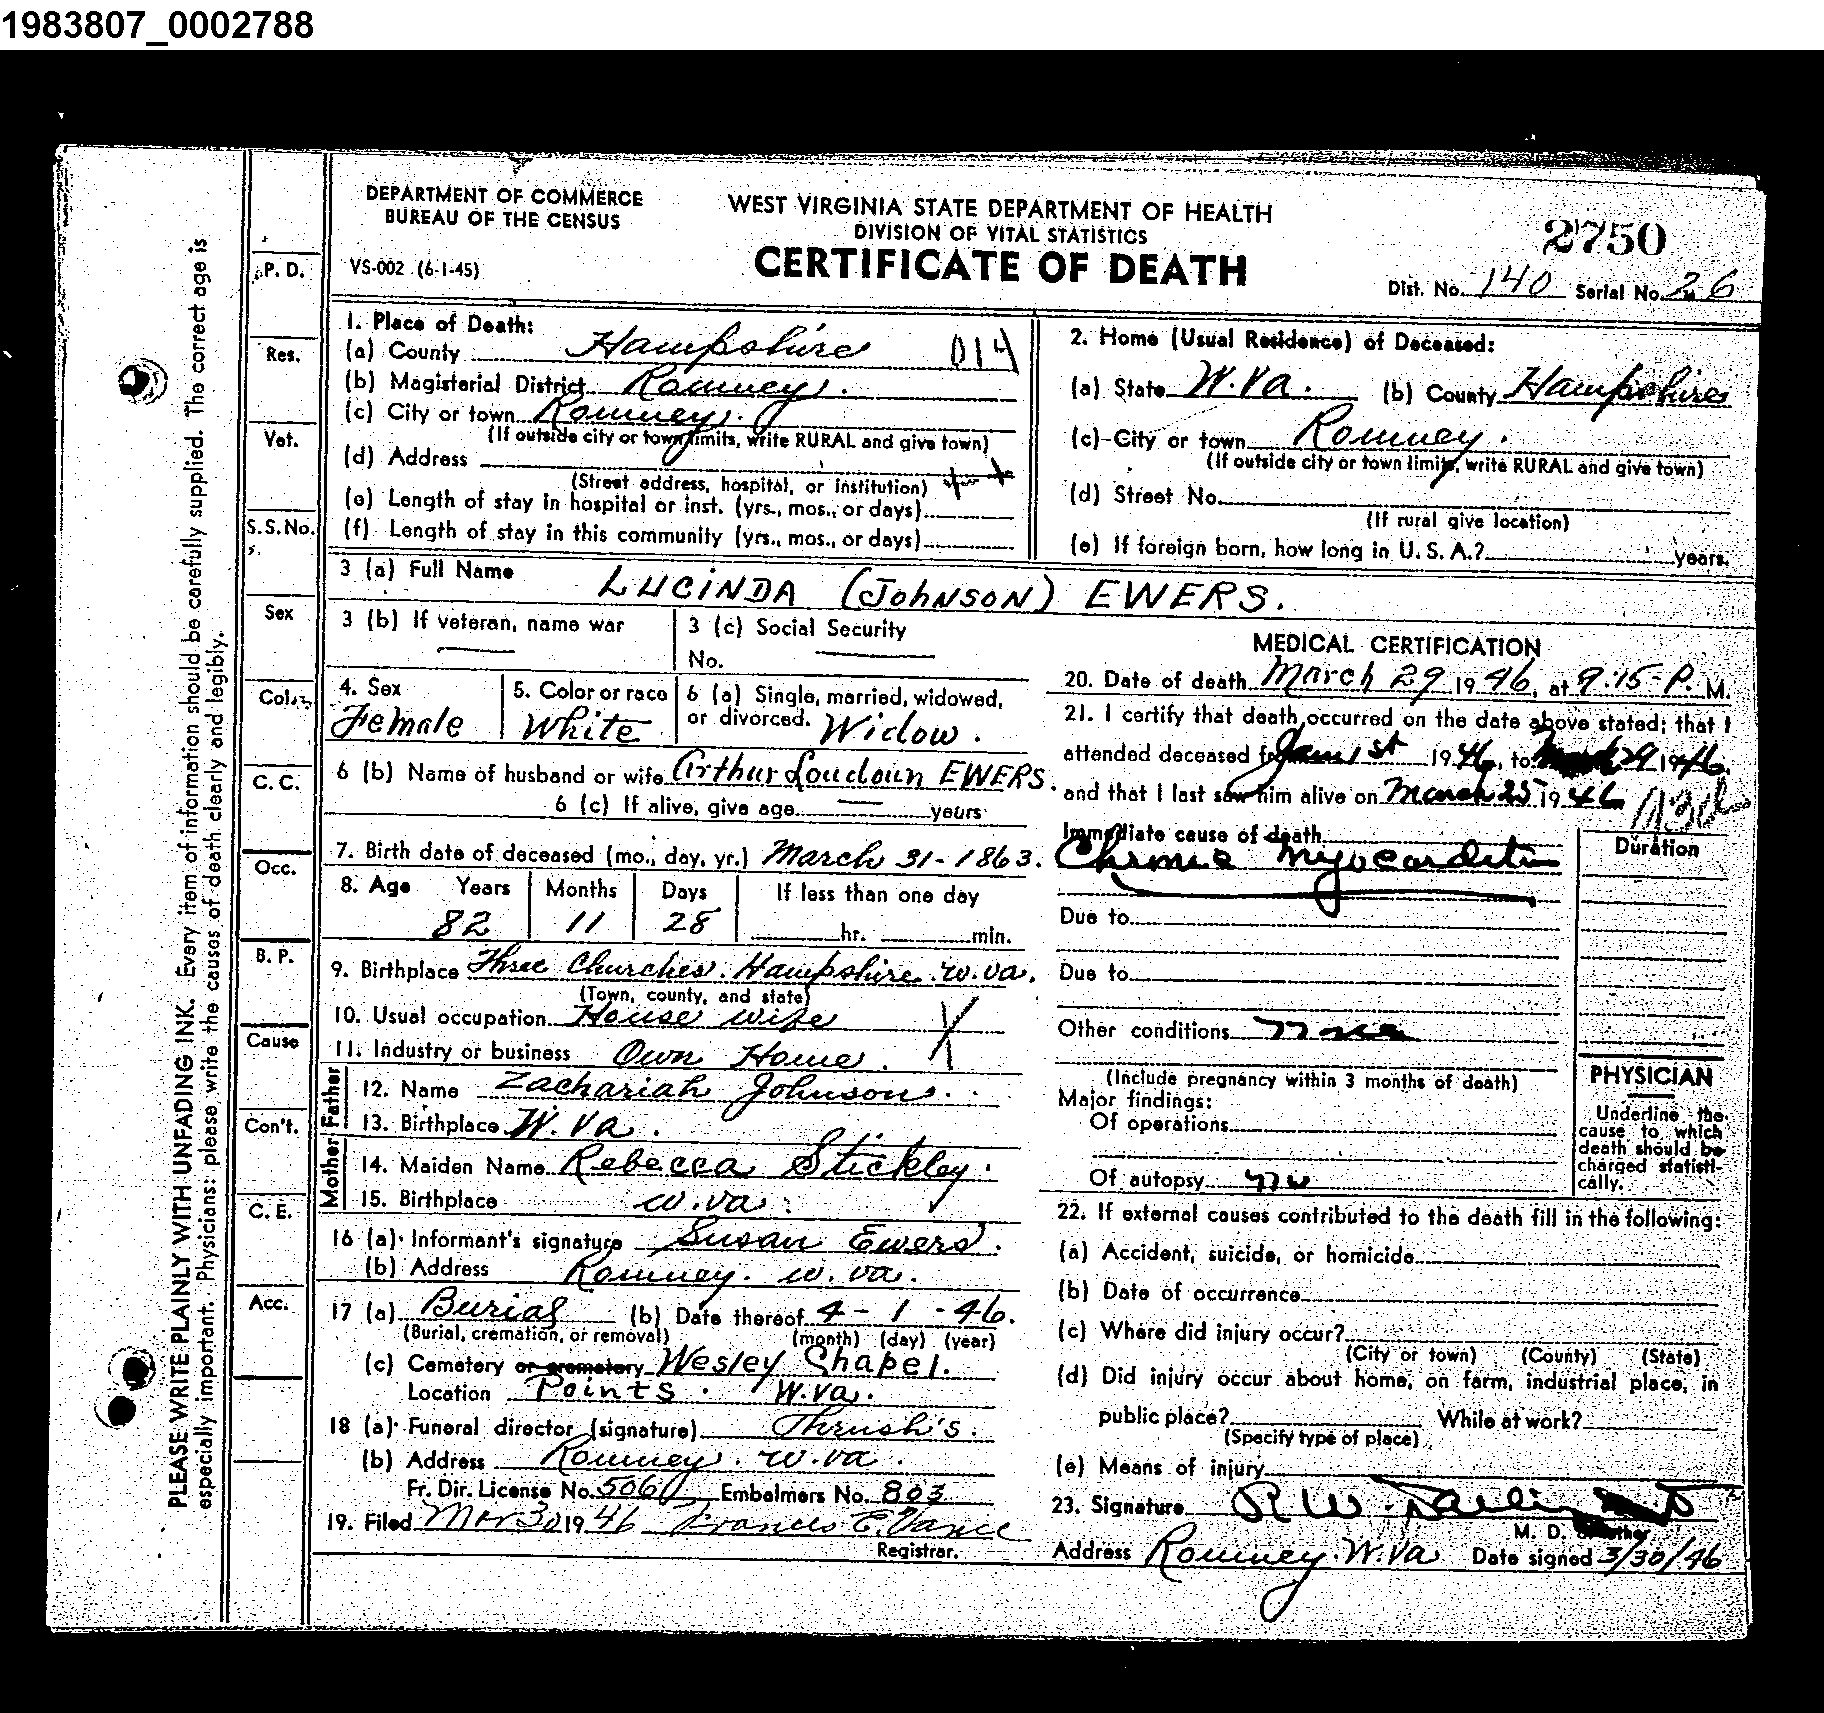 1983807_0002788
DEPARTMENT OF COMMERCE
BUREAU OF THE CENSUS
VS-002 (6-1-45)
WEST VIRGINIA STATE DEPARTMENT OF HEALTH
DIVISION OF VITAL STATISTICS
CERTIFICATE OF DEATH
2750
Dist. No. 140 Serial No. 26
PLEASE WRITE PLAINLY WITH UNFADING INK. Every item of information should be carefully supplied. The correct age is
especially important. Physicians: please write the causes of death clearly and legibly.
P. D.
Res.
Vet.
S.S.No.
Sex
Col.
C. C.
Occ.
B. P.
Cause
Con't.
C. E.
Acc.
1. Place of Death:
(a) County Hampshire 014
(b) Magisterial District Romney.
(c) City or town Romney.
(If outside city or town limits, write RURAL and give town)
(d) Address
(Street address, hospital, or institution)
(e) Length of stay in hospital or inst. (yrs., mos., or days)
(f) Length of stay in this community (yrs., mos., or days)
2. Home (Usual Residence) of Deceased:
(a) State W.Va. (b) County Hampshire
(c) City or town Romney.
(If outside city or town limits, write RURAL and give town)
(d) Street No.
(If rural give location)
(e) If foreign born, how long in U. S. A.? years.
3 (a) Full Name LUCINDA (JOHNSON) EWERS.
3 (b) If veteran, name war
3 (c) Social Security
No.
4. Sex
Female
5. Color or race
White
6 (a) Single, married, widowed,
or divorced. Widow.
6 (b) Name of husband or wife Arthur Loudoun EWERS.
6 (c) If alive, give age years
7. Birth date of deceased (mo., day, yr.) March 31-1863.
8. Age Years Months Days If less than one day
82 11 28 hr. min.
9. Birthplace Three Churches. Hampshire. W.Va.
(Town, county, and state)
10. Usual occupation House wife
11. Industry or business Own Home.
Father
12. Name Zachariah Johnson.
13. Birthplace W.Va.
Mother
14. Maiden Name Rebecca Stickley.
15. Birthplace W.Va.
16 (a) Informant's signature Susan Ewers.
(b) Address Romney. W.Va.
17 (a) Burial (b) Date thereof 4-1-46.
(Burial, cremation, or removal) (month) (day) (year)
(c) Cemetery or crematory Wesley Chapel.
Location Points. W.Va.
18 (a) Funeral director (signature) Thrush's.
(b) Address Romney. W.Va.
Fr. Dir. License No. 5060 Embalmers No. 803
19. Filed Mar 30 1946 Frances E. Vance
Registrar.
MEDICAL CERTIFICATION
20. Date of death March 29 1946, at 9:15-P. M.
21. I certify that death occurred on the date above stated; that I
attended deceased from Jan 1st 1946, to March 29 1946,
and that I last saw him alive on March 25 1946
Immediate cause of death
Chronic Myocarditis
Duration
Due to
Due to
Other conditions none
(Include pregnancy within 3 months of death)
Major findings:
Of operations
Of autopsy no
PHYSICIAN
Underline the
cause to which
death should be
charged statisti-
cally.
22. If external causes contributed to the death fill in the following:
(a) Accident, suicide, or homicide
(b) Date of occurrence
(c) Where did injury occur?
(City or town) (County) (State)
(d) Did injury occur about home, on farm, industrial place, in
public place? While at work?
(Specify type of place)
(e) Means of injury
23. Signature R W
M. D.
Address Romney. W.Va Date signed 3/30/46